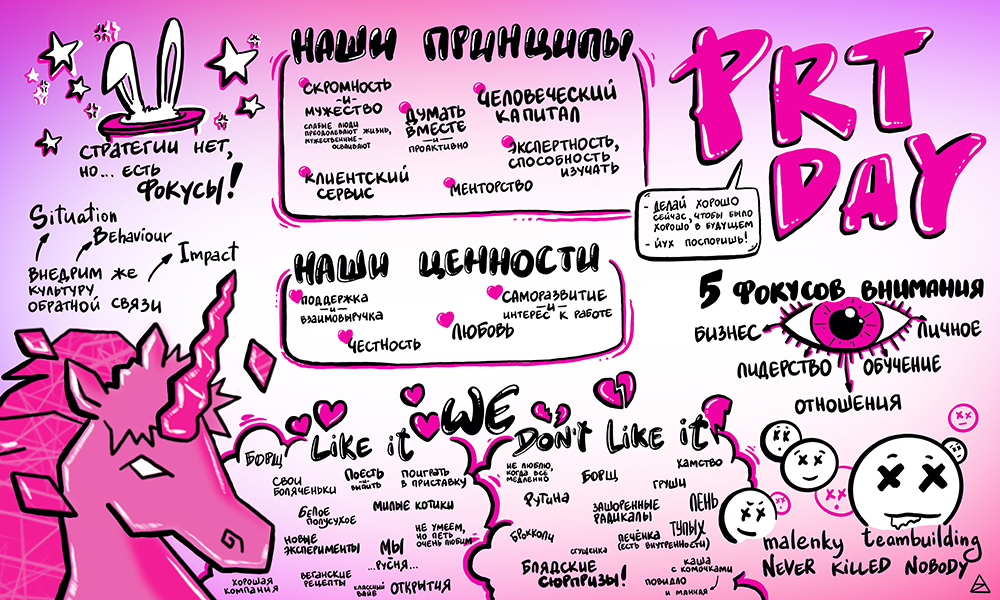 СТРАТЕГИИ НЕТ,
НО... ЕСТЬ
ФОКУСЫ!
Situation
Behaviour
Impact
ВНЕДРИМ ЖЕ
КУЛЬТУРУ
ОБРАТНОЙ СВЯЗИ
НАШИ ПРИНЦИПЫ
СКРОМНОСТЬ
-И-
МУЖЕСТВО
СЛАБЫЕ ЛЮДИ
ПРЕОДОЛЕВАЮТ ЖИЗНЬ,
МУЖЕСТВЕННЫЕ -
ОСВАИВАЮТ
ДУМАТЬ
ВМЕСТЕ
-И-
ПРОАКТИВНО
ЧЕЛОВЕЧЕСКИЙ
КАПИТАЛ
ЭКСПЕРТНОСТЬ,
СПОСОБНОСТЬ
ИЗУЧАТЬ
КЛИЕНТСКИЙ
СЕРВИС
МЕНТОРСТВО
НАШИ ЦЕННОСТИ
ПОДДЕРЖКА
-И-
ВЗАИМОВЫРУЧКА
САМОРАЗВИТИЕ
-И-
ИНТЕРЕС К РАБОТЕ
ЧЕСТНОСТЬ
ЛЮБОВЬ
PRT
DAY
- ДЕЛАЙ ХОРОШО
СЕЙЧАС, ЧТОБЫ БЫЛО
ХОРОШО В БУДУЩЕМ
- ЙУХ ПОСПОРИШЬ!
5 ФОКУСОВ ВНИМАНИЯ
БИЗНЕС
ЛИЧНОЕ
ЛИДЕРСТВО
ОБУЧЕНИЕ
ОТНОШЕНИЯ
WE
Like it
БОРЩ
СВОИ
БОЛЯЧЕНЬКИ
ПОЕСТЬ
-И-
ВЫПИТЬ
ПОИГРАТЬ
В ПРИСТАВКУ
БЕЛОЕ
ПОЛУСУХОЕ
МИЛЫЕ КОТИКИ
НОВЫЕ
ЭКСПЕРИМЕНТЫ
МЫ
-...-
РУСНЯ...
НЕ УМЕЕМ,
НО ПЕТЬ
ОЧЕНЬ ЛЮБИМ
ХОРОШАЯ
КОМПАНИЯ
ВЕГАНСКИЕ
РЕЦЕПТЫ
КЛАССНЫЙ
ВАЙБ
ОТКРЫТИЯ
DON'T Like it
НЕ ЛЮБЛЮ,
КОГДА ВСЕ
МЕДЛЕННО
БОРЩ
ХАМСТВО
РУТИНА
ГРУШИ
ЗАШОРЕННЫЕ
РАДИКАЛЫ
ЛЕНЬ
БРОККОЛИ
ПЕЧЁНКА
(ЕСТЬ ВНУТРЕННОСТИ)
ТУПЫХ
СГУЩЕНКА
БЛЯДСКИЕ
СЮРПРИЗЫ!
КАША
С КОМОЧКАМИ
ПОВИДЛО
И МАННАЯ
malenky teambuilding
NEVER KILLED NOBODY